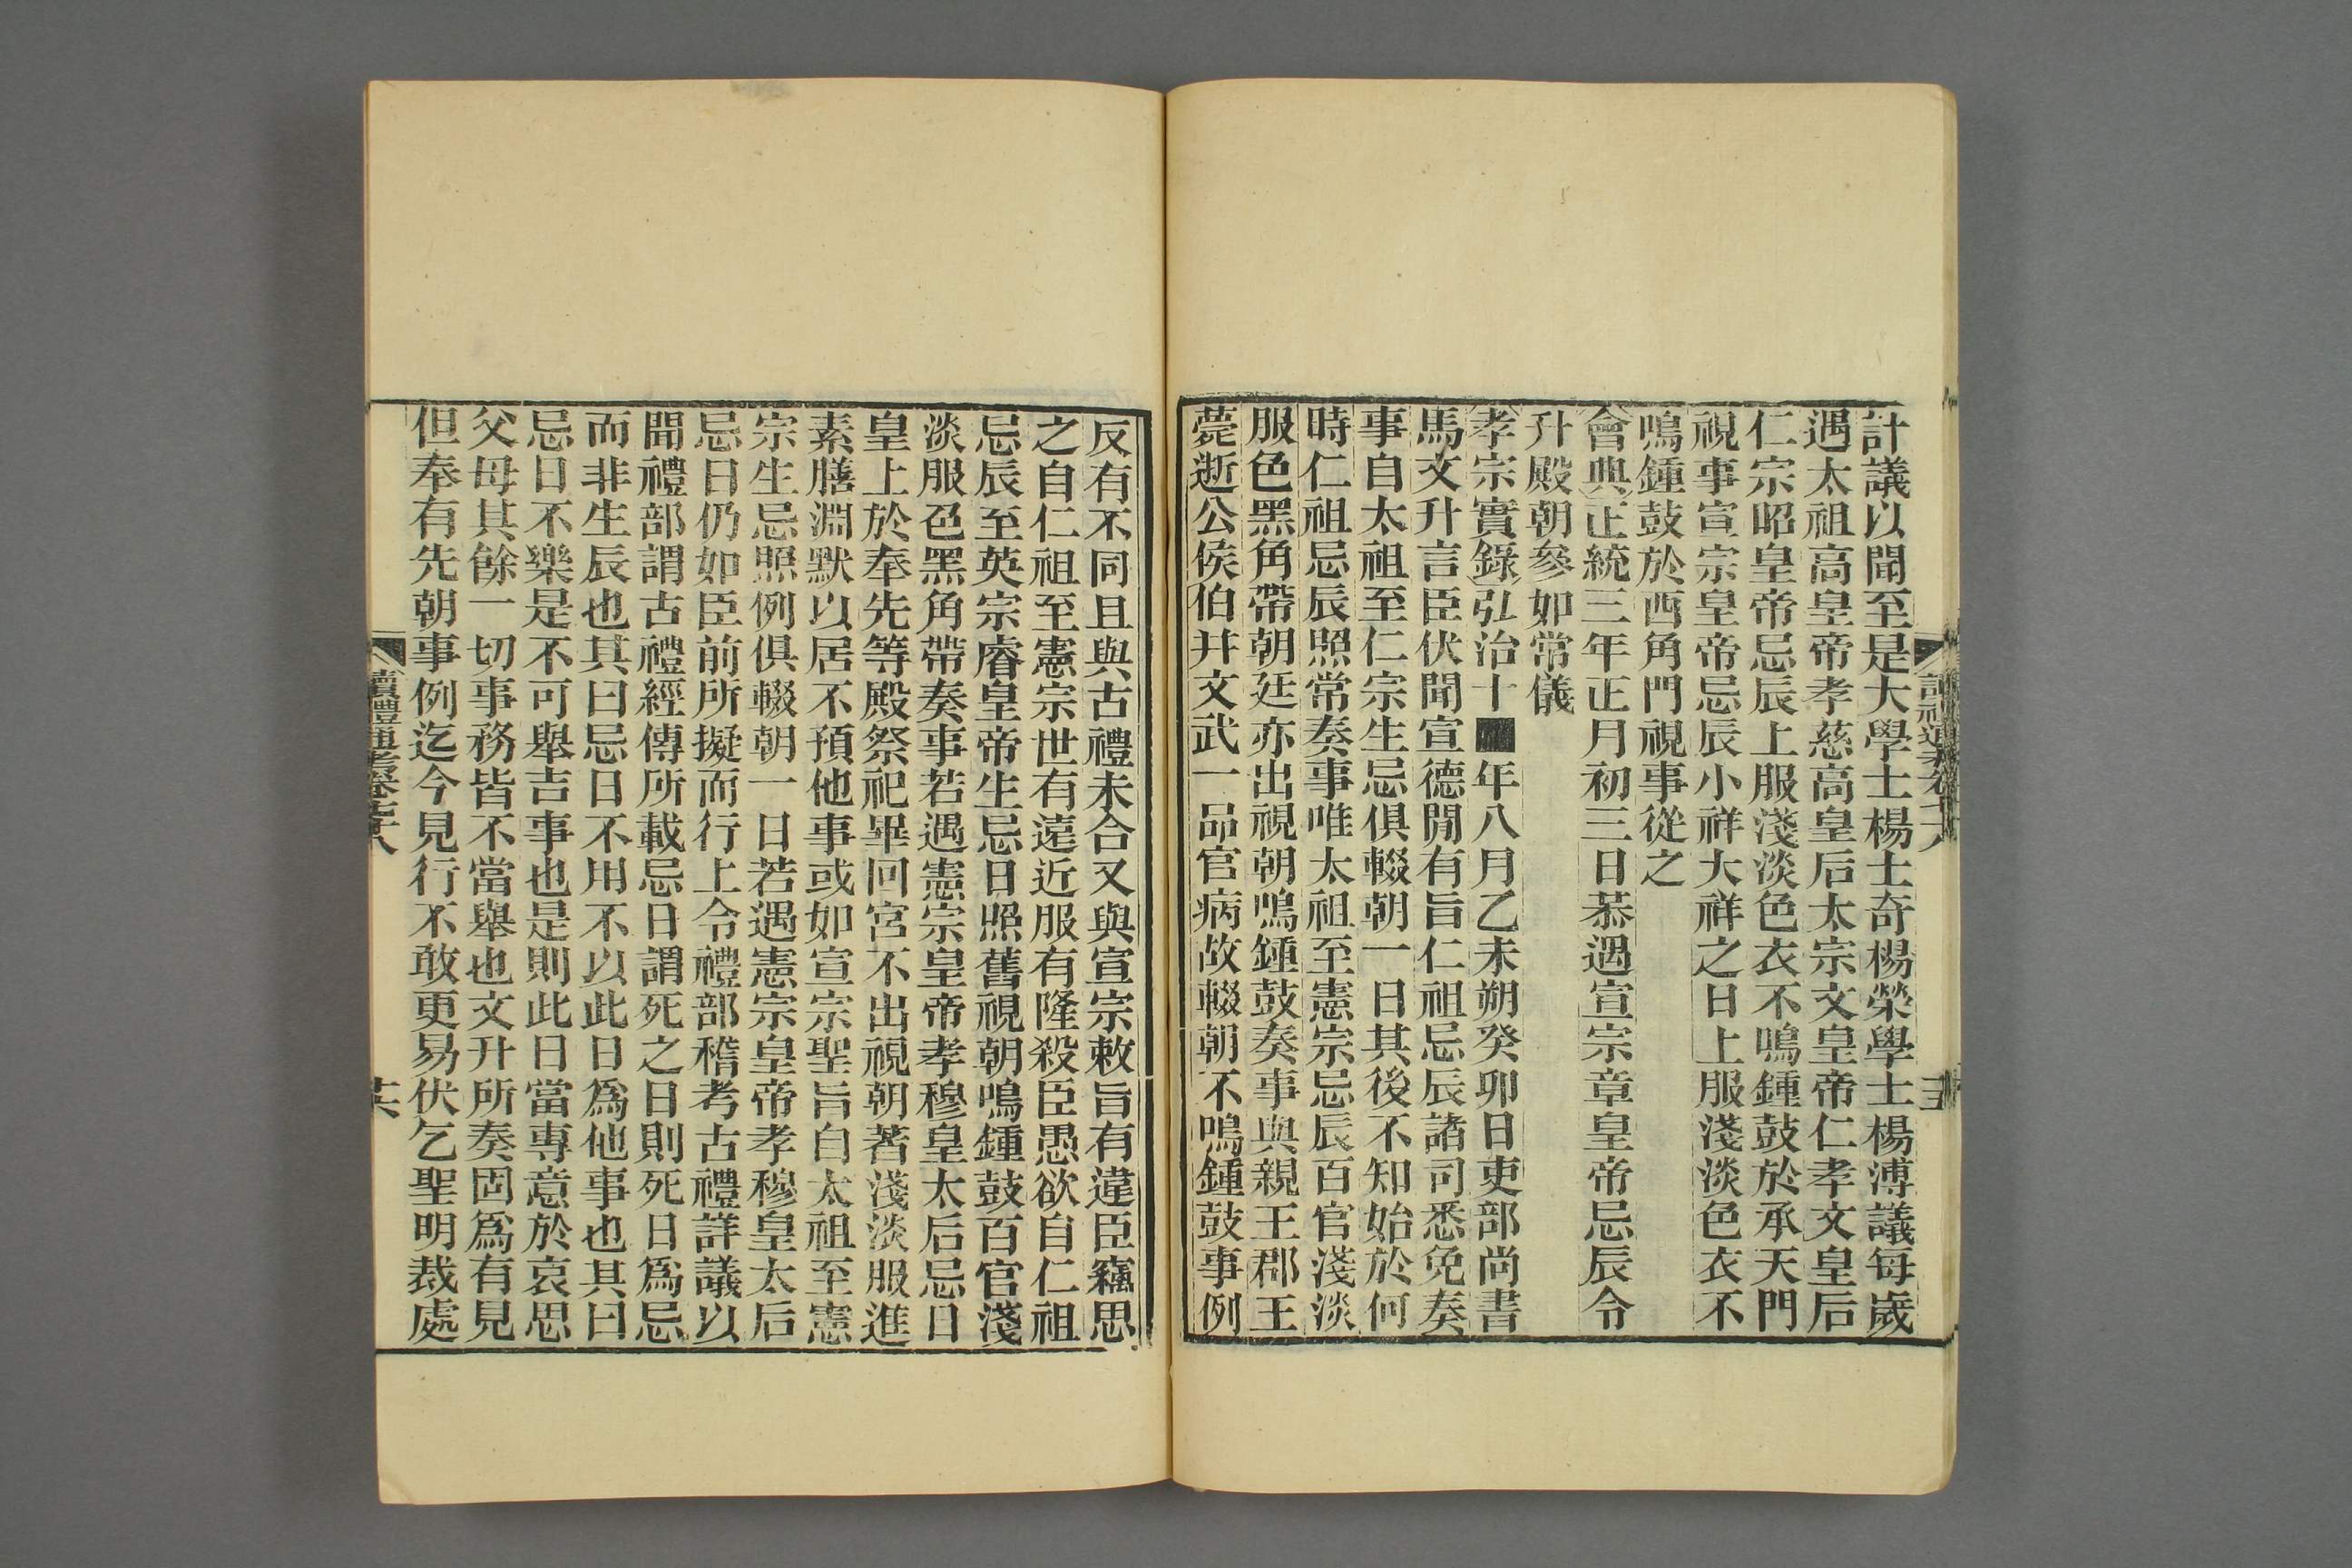 計議以聞至是大學士楊士奇楊榮學士楊溥議每歲
遇太祖高皇帝孝慈高皇后太宗文皇帝仁孝文皇后
仁宗昭皇帝忌辰上服淺淡色衣不鳴鍾鼓於承天門
視事宣宗皇帝忌辰小祥大祥之日上服淺淡色衣不
鳴鍾鼓於西角門視事從之
會典正統三年正月初三日恭遇宣宗章皇帝忌辰令
升殿朝參如常儀
孝宗實錄弘治十■年八月乙未朔癸卯日吏部尚書
馬文升言臣伏聞宣德閒有旨仁祖忌辰諸司悉免奏
事自太祖至仁宗生忌俱輟朝一日其後不知始於何
時仁祖忌辰照常奏事唯太祖至憲宗忌辰百官淺淡
服色黑角帶朝廷亦出視朝鳴鍾鼓奏事與親王郡王
薨逝公侯伯幷文武一品官病故輟朝不鳴鍾鼓事例
反有不同且與古禮未合又與宣宗敕旨有違臣竊思
之自仁祖至憲宗世有遠近服有隆殺臣愚欲自仁祖
忌辰至英宗睿皇帝生忌日照舊視朝鳴鍾鼓百官淺
淡服色黑角帶奏事若遇憲宗皇帝孝穆皇太后忌日
皇上於奉先等殿祭祀畢回宮不出視朝著淺淡服進
素膳淵默以居不預他事或如宣宗聖旨自太祖至憲
宗生忌照例俱輟朝一日若遇憲宗皇帝孝穆皇太后
忌日仍如臣前所擬而行上令禮部稽考古禮詳議以
聞禮部謂古禮經傳所載忌日謂死之日則死日爲忌
而非生辰也其曰忌日不用不以此日爲他事也其曰
忌日不樂是不可舉吉事也是則此日當專意於哀思
父母其餘一切事務皆不當舉也文升所奏固爲有見
但奉有先朝事例迄今見行不敢更易伏乞聖明裁處
讀禮通考卷